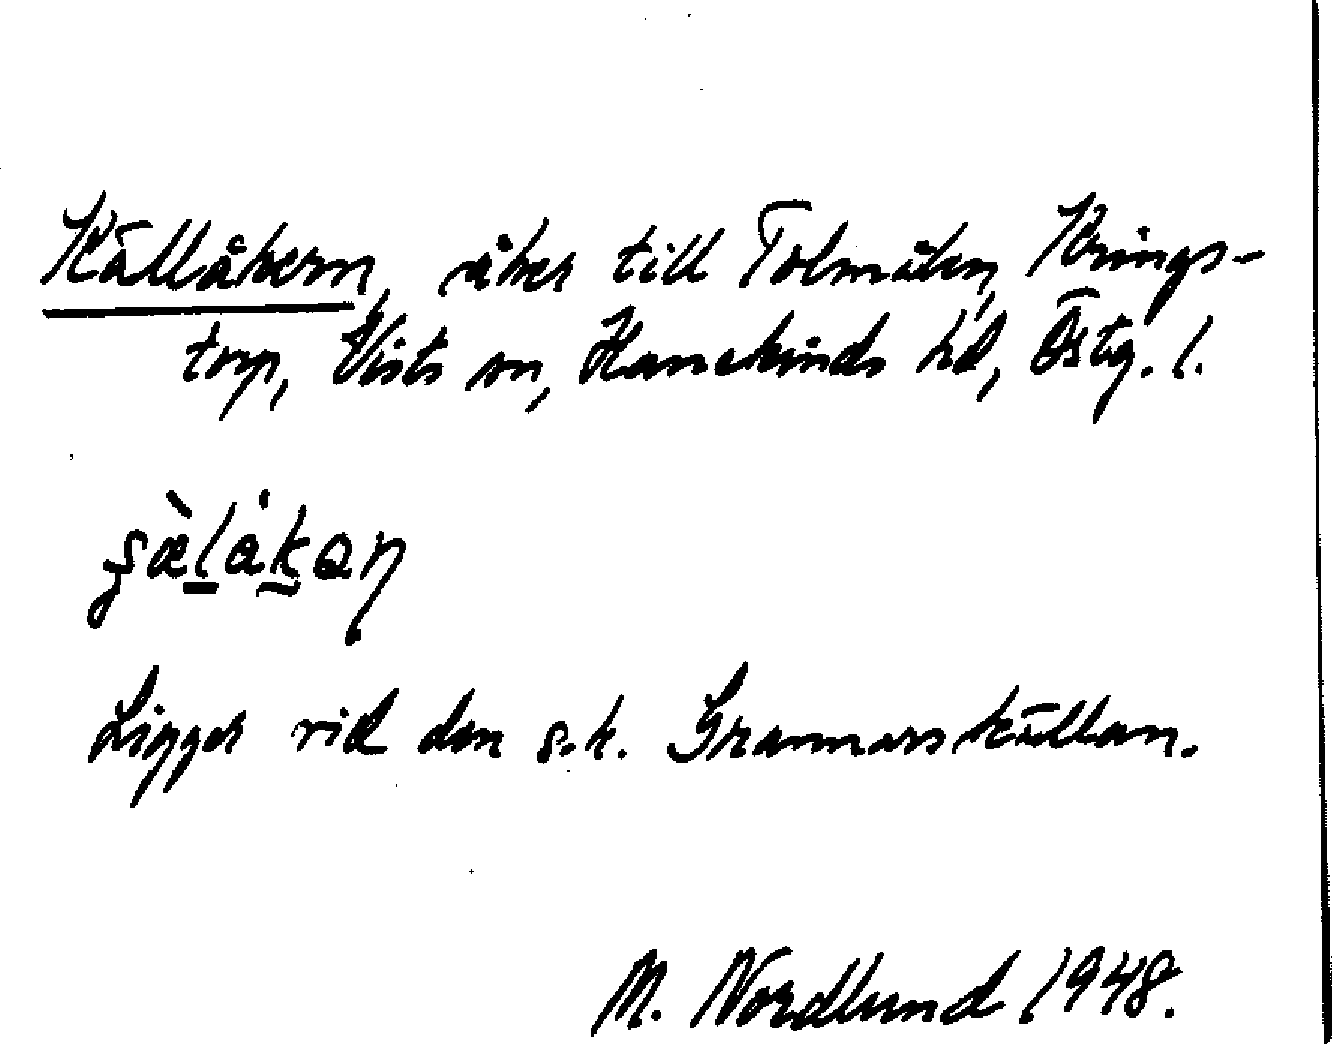 Källåkern, åker till Tolmålen, Krings-
torp, Vists sn, Hanekinds hd, Östg. l.
Ligger vid den s.k. Grannarskällan.
M. Nordlund 1948.